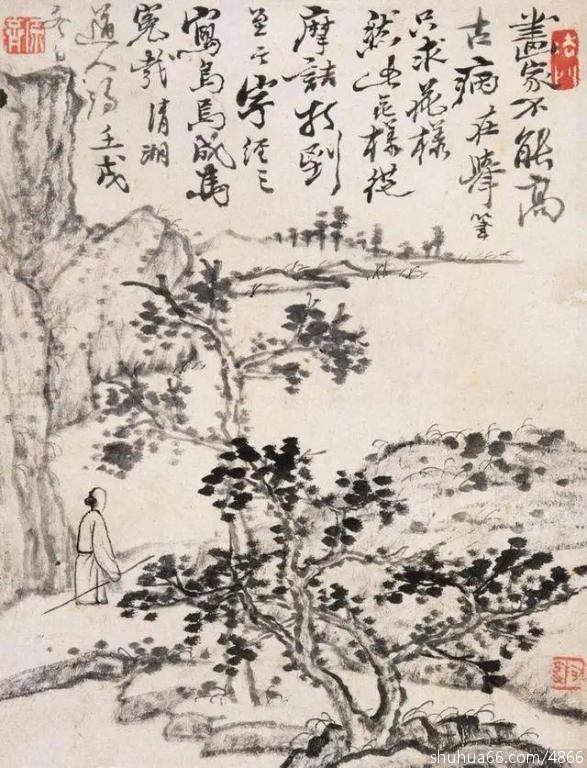 畫家不能高
古病在舉筆
只求花樣
然此花樣從
摩詰打到
至今字經三
寫烏焉成馬
冤哉清湘
道人濟壬戌
冬日
shuhua66.com/4866